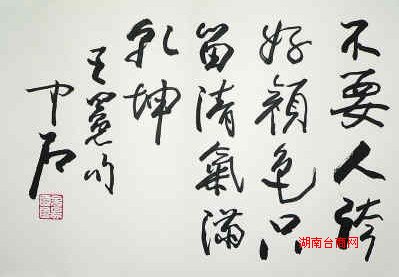 不要人誇
好顏色只
留清氣滿
乾坤
王冕句
中石
湖南台商网